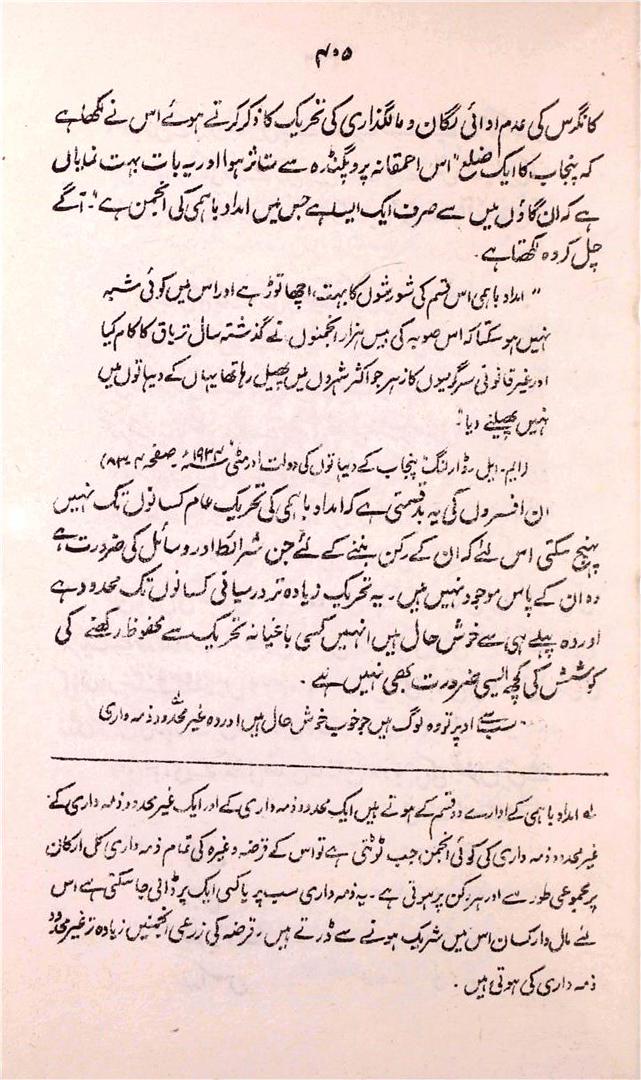 ۴۰۵
کانگرس کی عدم ادائی لگان و مالگذاری کی تحریک کا ذکر کرتے ہوئے اس نے لکھا ہے
کہ پنجاب کا ایک ضلع "اس احمقانہ پروپگنڈہ سے متاثر ہوا اور یہ بات بہت نمایاں
ہے کہ ان گاؤں میں سے صرف ایک ایسا ہے جس میں امداد باہمی کی انجمن ہے"۔ آگے
چل کر وہ لکھتا ہے۔
" امداد باہمی اس قسم کی شورشوں کا بہت اچھا توڑ ہے اور اس میں کوئی شبہ
نہیں ہو سکتا کہ اس صوبہ کی بیس ہزار انجمنوں نے گذشتہ سال تریاق کا کام کیا
اور غیر قانونی سرگرمیوں کا زہر جو اکثر شہروں میں پھیل رہا تھا یہاں کے دیہاتوں میں
نہیں پھیلنے دیا"۔
(ایم۔ ایل۔ ڈارلنگ "پنجاب کے دیہاتوں کی دولت اور مٹی" ۱۹۳۴ء۔ صفحہ
ان افسروں کی یہ بدقسمتی ہے کہ امداد باہمی کی تحریک عام کسانوں تک نہیں
پہنچ سکتی اس لئے کہ ان کے رکن بننے کے لئے جن شرائط اور وسائل کی ضرورت ہے
وہ ان کے پاس موجود نہیں ہیں۔ یہ تحریک زیادہ تر درمیانی کسانوں تک محدود ہے
اور وہ پہلے ہی سے خوش حال ہیں انہیں کسی باغیانہ تحریک سے محفوظ رکھنے کی
کوشش کی کچھ ایسی ضرورت بھی نہیں ہے۔
"سب سے اوپر تو وہ لوگ ہیں جو خوب خوش حال ہیں اور وہ غیر محدود ذمہ داری
لہ امداد باہمی کے ادارے دو قسم کے ہوتے ہیں ایک محدود ذمہ داری کے اور ایک غیر محدود ذمہ داری کے
غیر محدود ذمہ داری کی کوئی انجمن جب ٹوٹتی ہے تو اس کے قرضہ وغیرہ کی تمام ذمہ داری کل ارکان
پر مجموعی طور سے اور ہر رکن پر ہوتی ہے۔ یہ ذمہ داری سب پر یا کسی ایک پر ڈالی جا سکتی ہے اس
لئے مال دار کسان اس میں شریک ہونے سے ڈرتے ہیں۔ قرضہ کی زرعی انجمنیں زیادہ تر غیر محدود
ذمہ داری کی ہوتی ہیں۔